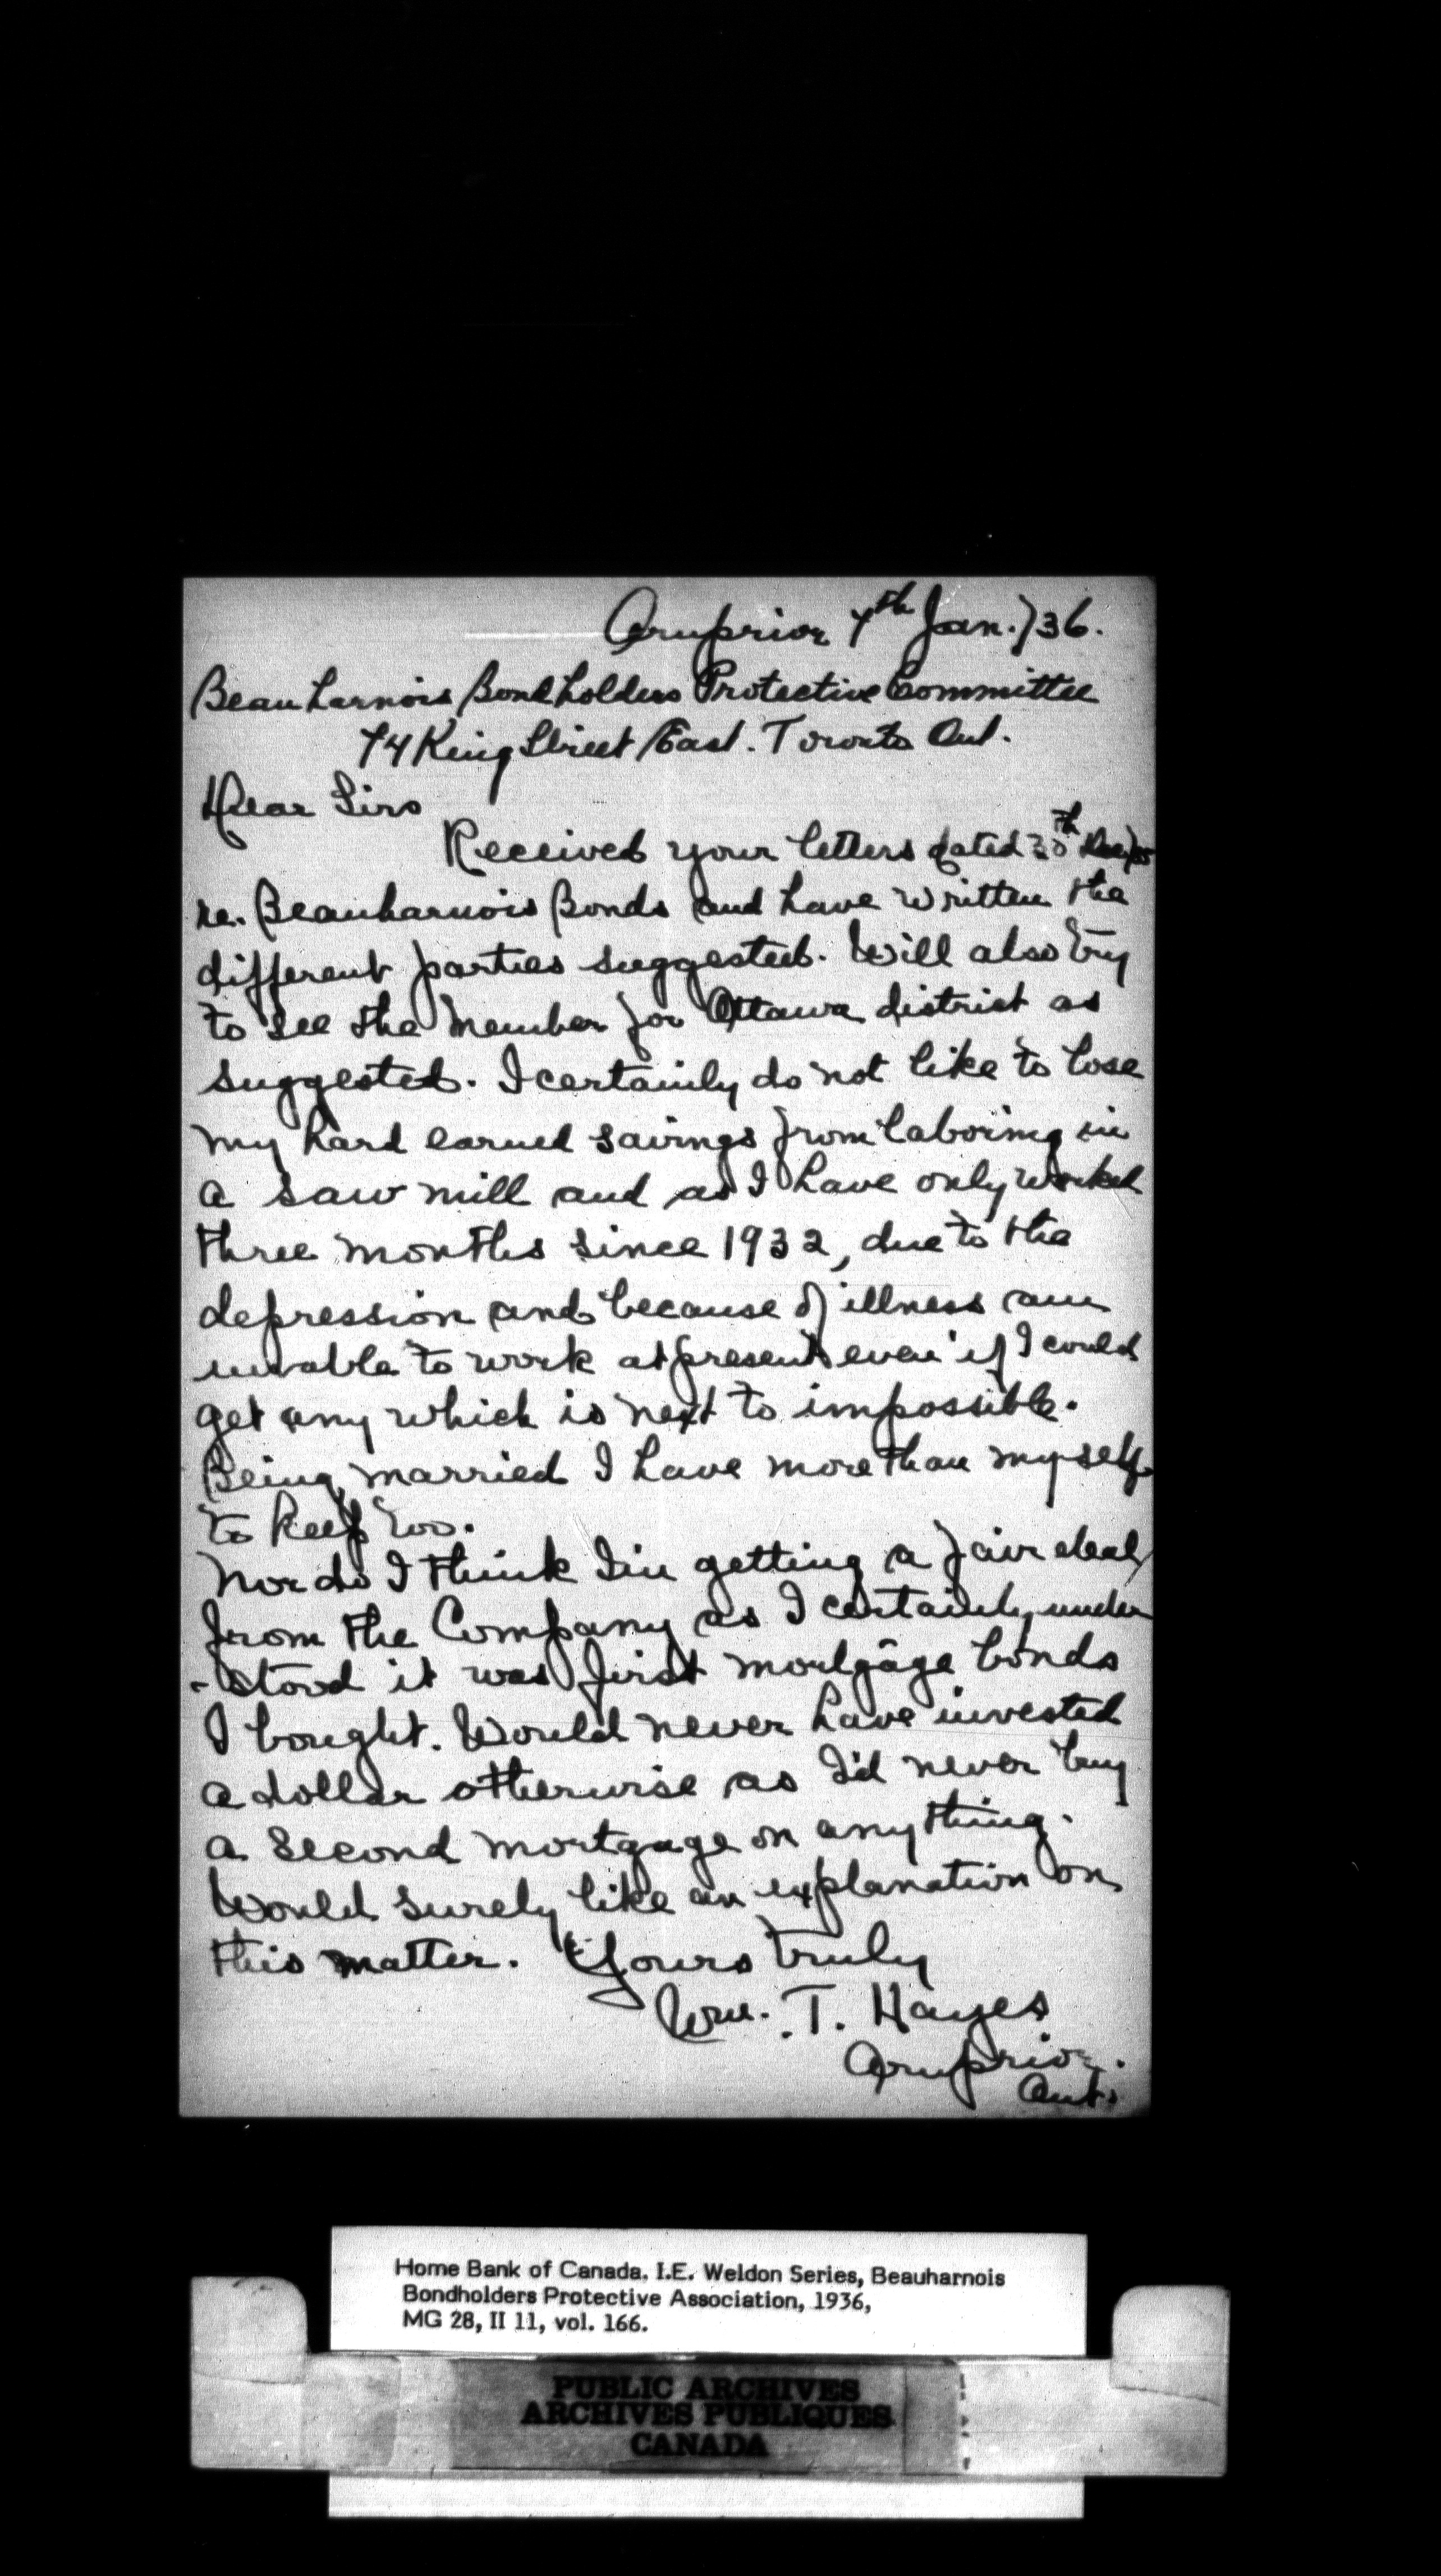 Arnprior 7th Jan. / 36.
Beauharnois Bondholders Protective Committee
74 King Street East. Toronto Ont.
Dear Sirs
Received your letters dated 30th Dec/35
re. Beauharnois Bonds and have written the
different parties suggested. Will also try
to see the Member for Ottawa district as
suggested. I certainly do not like to lose
my hard earned savings from laboring in
a saw mill and as I have only worked
three months since 1932, due to the
depression and because of illness am
unable to work at present even if I could
get any which is next to impossible.
Being married I have more than myself
to keep too.
Nor do I think I'm getting a fair deal
from the Company as I certainly under
-stood it was first mortgage bonds
I bought. Would never have invested
a dollar otherwise as I'd never buy
a second mortgage on anything.
Would surely like an explanation on
this matter. Yours truly
Wm. T. Hayes
Arnprior.
Ont.
Home Bank of Canada. I.E. Weldon Series, Beauharnois
Bondholders Protective Association, 1936,
MG 28, II 11, vol. 166.
PUBLIC ARCHIVES
ARCHIVES PUBLIQUES
CANADA